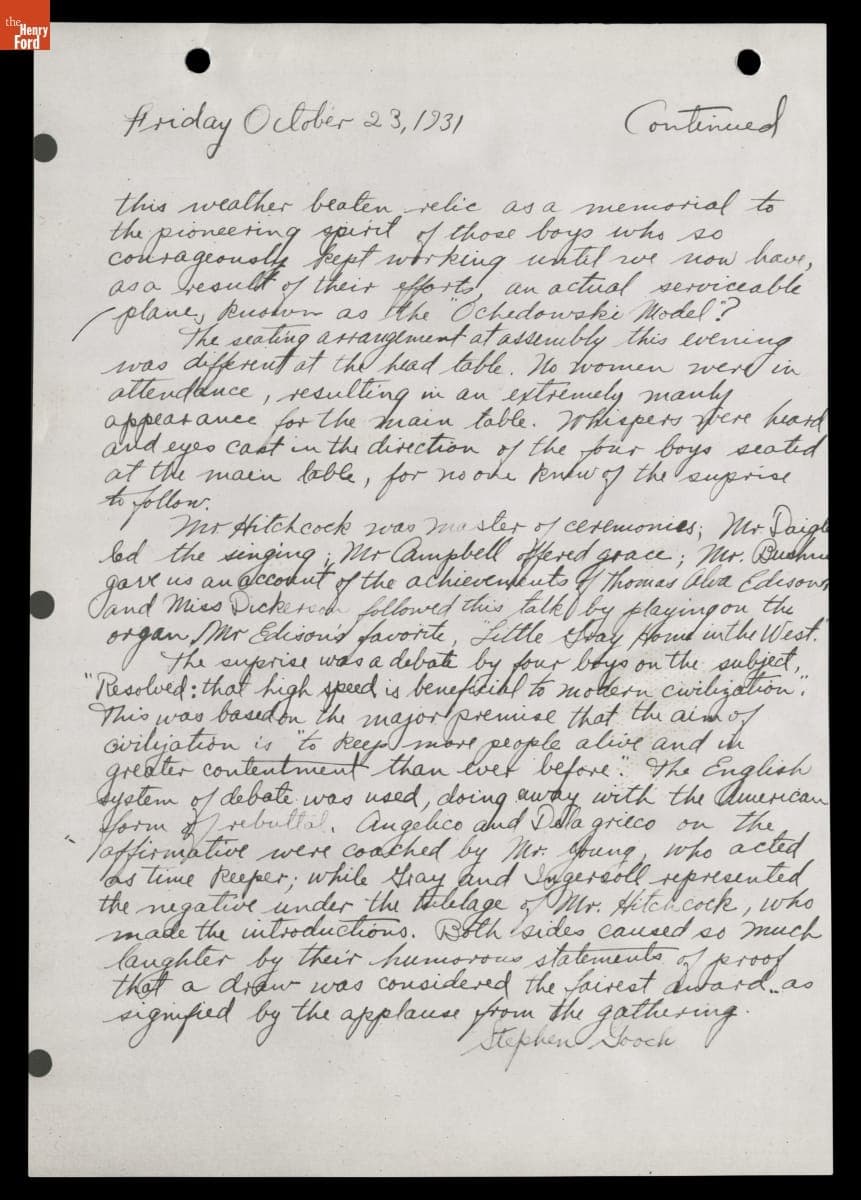 the
Henry
Ford
Friday October 23, 1931 Continued
this weather beaten relic as a memorial to
the pioneering spirit of those boys who so
courageously kept working until we now have,
as a result of their efforts, an actual serviceable
plane, known as the "Ochedowski Model"?
The seating arrangement at assembly this evening
was different at the head table. No women were in
attendance, resulting in an extremely manly
appearance for the main table. Whispers were heard
and eyes cast in the direction of the four boys seated
at the main table, for no one knew of the suprise
to follow.
Mr. Hitchcock was master of ceremonies; Mr Daigle
led the singing; Mr Campbell offered grace; Mr.
gave us an account of the achievements of Thomas Alva Edison,
and Miss Dickerson followed this talk by playing on the
organ, Mr Edison's favorite, "Little Gray Home in the West."
The suprise was a debate by four boys on the subject,
"Resolved: that high speed is beneficial to modern civilization".
This was based on the major premise that the aim of
civilization is "to keep more people alive and in
greater contentment than ever before". The English
system of debate was used, doing away with the American
form of rebuttal. Angelico and Delagrieco on the
affirmative were coached by Mr. Young, who acted
as time keeper; while Gray and Ingersoll represented
the negative under the tutelage of Mr. Hitchcock, who
made the introductions. Both sides caused so much
laughter by their humorous statements of proof
that a draw was considered the fairest award.. as
signified by the applause from the gathering.
Stephen Gooch